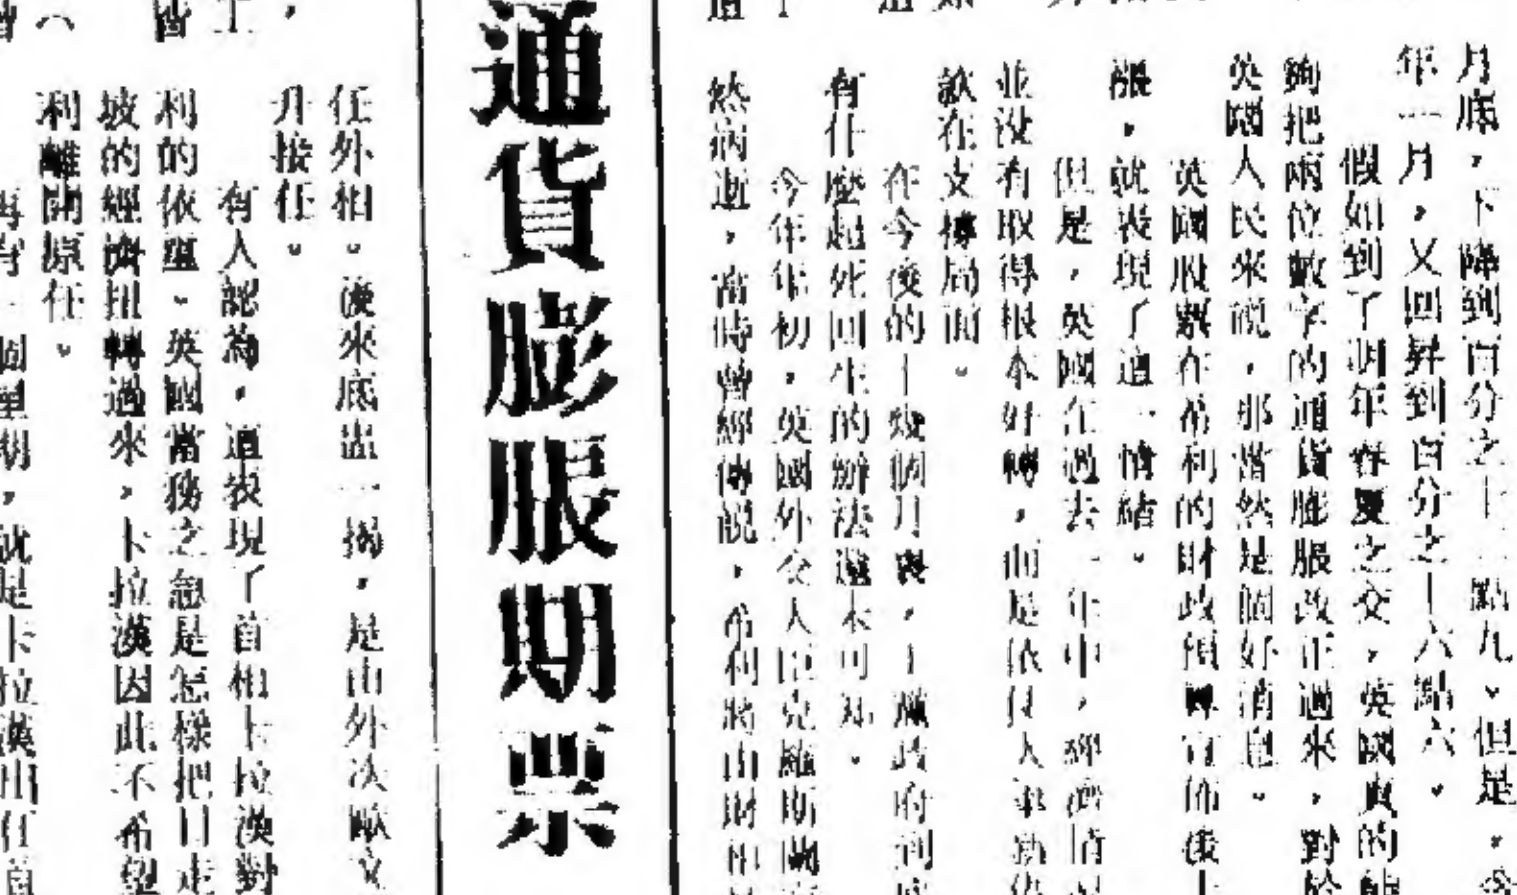 月底，下降到百分之十二點九。但是，今
年一月，又回昇到百分之十六點六。
假如到了明年春夏之交，英國真的能
夠把兩位數字的通貨膨脹改正過來，對於
英國人民來說，那當然是個好消息。
英國股票在希利的財政預算宣佈後上
漲，就表現了這一情緒。
但是，英國在過去一年中，經濟情況
並沒有取得根本好轉，而是依仗大舉
款在支撐局面。
在今後的十幾個月裏，工黨政府到底
有什麼起死回生的辦法還未可知。
今年年初，英國外交大臣克羅斯蘭
然病逝，當時曾經傳說，希利將由財相
通貨膨脹期票
任外相。後來底盅一揭，是由外次歐文
升接任。
有人認為，這表現了首相卡拉漢對
利的依重。英國當務之急是怎樣把日走
坡的經濟扭轉過來，卡拉漢因此不希望
利離開原任。
再有一個星期，就是卡拉漢出任首